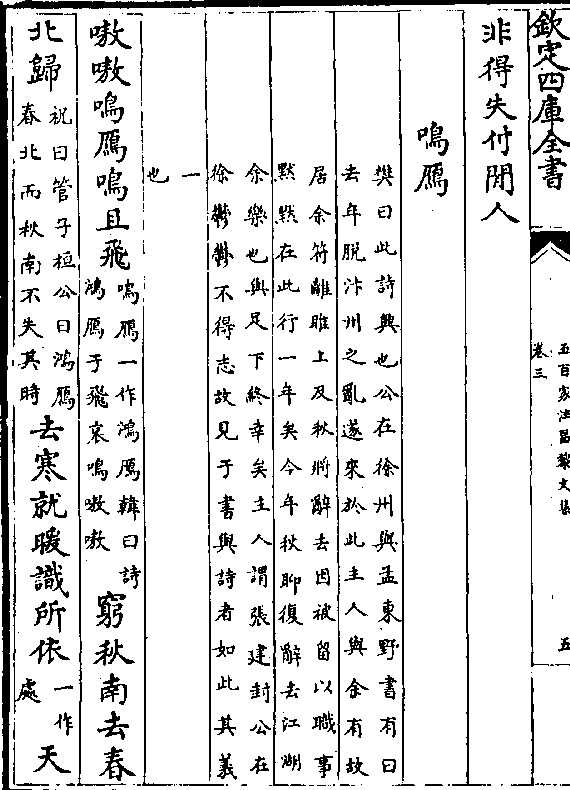 欽定四庫全書
五百家注昌黎文集
卷三
五
非得失付閒人
鳴鴈
樊曰此詩興也公在徐州與孟東野書有曰
去年脫汴州之亂遂來於此主人與余有故
居余符離睢上及秋將辭去因被留以職事
黙黙在此行一年矣今年秋聊復辭去江湖
余樂也與足下終幸矣主人謂張建封公在
徐鬱鬱不得志故見于書與詩者如此其義
一
也
嗷嗷鳴鴈鳴且飛
鳴鴈一作鴻鴈韓曰詩
鴻鴈于飛哀鳴嗷嗷
窮秋南去春
北歸
祝曰管子桓公曰鴻鴈
春北而秋南不失其時
去寒就暖識所依
一作
處
天